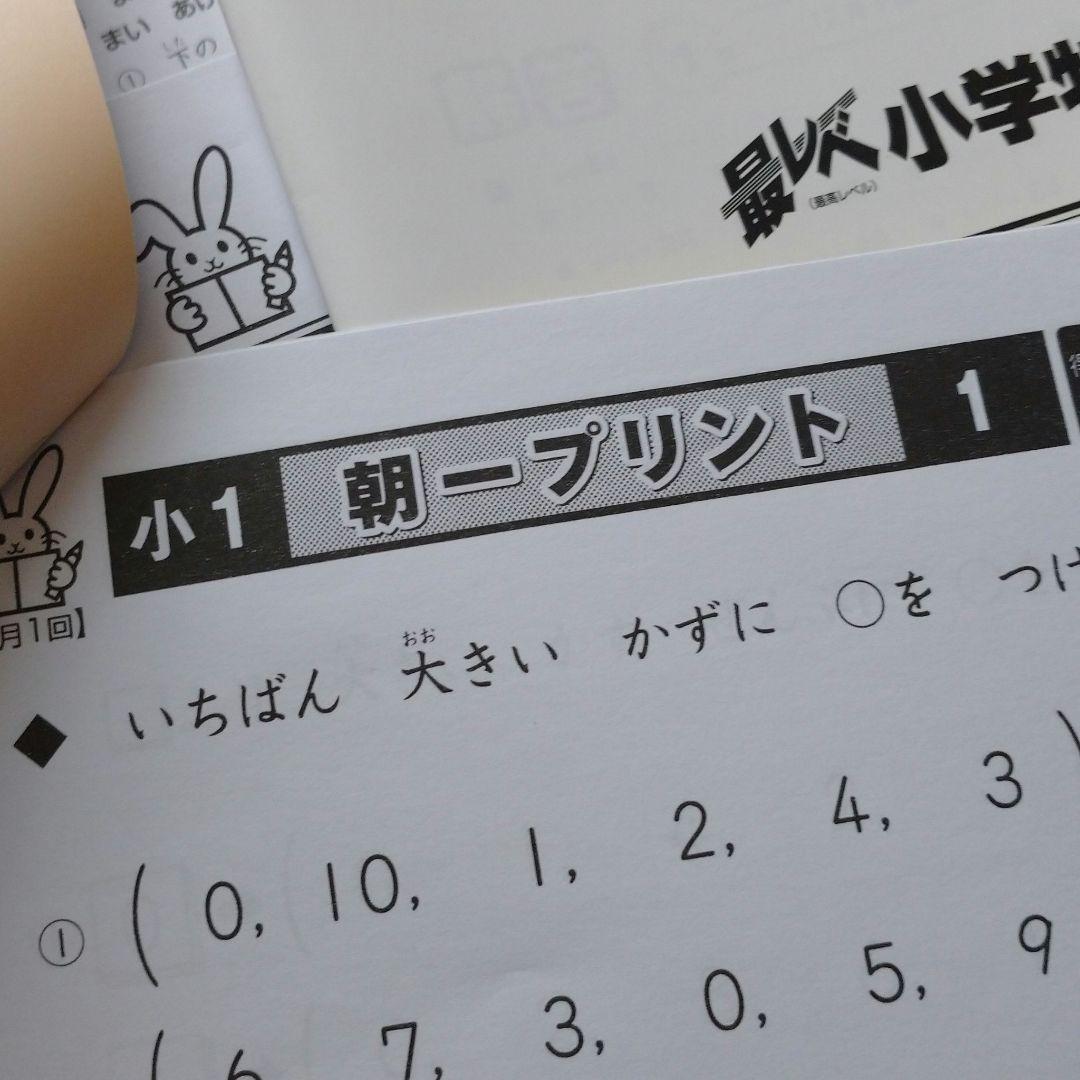 まい
① 下の
した
最レベ 小学
(最高レベル)
小1 朝一プリント 1
月1回】
おお
◆ いちばん 大きい かずに ○を つけ
① ( 0, 10, 1, 2, 4, 3 )
( 6, 7, 3, 0, 5, 9